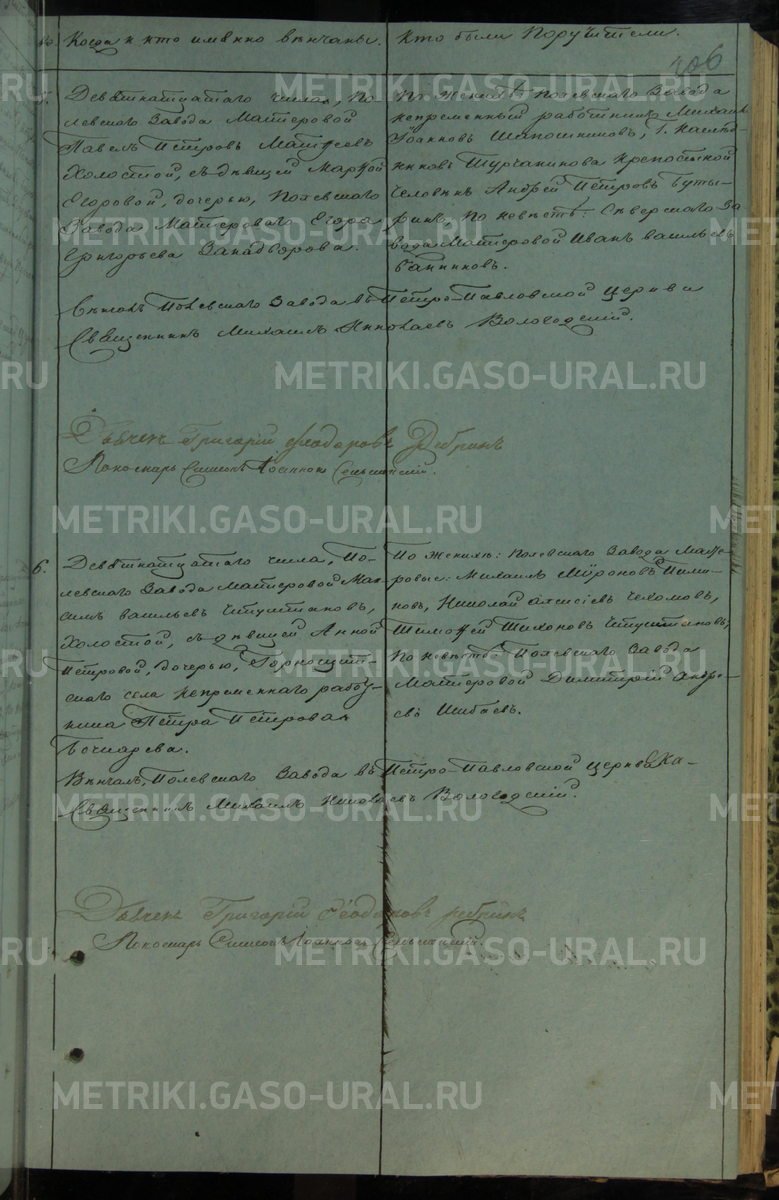 Когда и кто именно вѣнчаны.
Кто были Поручители.
206
5.
Девѣтнатцатаго числа, По-
левскаго Завода Матеровой
Павелъ Петровъ
Холостой, съ дѣвицей Марѳой
Егоровой, дочерью, Полевскаго
Завода Матероваго Егора
Григорьева
По Женихѣ Полевскаго Завода
непременный работникъ Михаилъ
Іоанновъ Шапошниковъ, г. Наслѣд-
никовъ Турчанинова крепостной
человѣкъ Андрей Петровъ Буты-
ринъ, По невѣстѣ: Сѣверскаго За-
вода Матеровой Иванъ Васильевъ
Вѣнчалъ Полевскаго Завода въ Петро-Павловской церкви
Священникъ Михаилъ Николаевъ Вологодскій.
Дьячекъ Григорій Феодоровъ Ребринъ
Пономарь Симеонъ Іоанновъ
6.
Девѣтнатцатаго числа, По-
левскаго Завода Матеровой Мак-
симъ Васильевъ Чипуштановъ,
Холостой, съ дѣвицей Анной
Петровой, дочерью, Горнощит-
скаго села непременнаго работ-
ника Петра Петрова
Бочкарева.
По Женихѣ: Полевскаго Завода Мате-
ровые: Михаилъ Мѵроновъ Пили-
новъ, Николай Алексіевъ Чеколовъ,
Тимоѳей Тихоновъ Чипуштановъ,
По невѣстѣ Полевскаго Завода
Матеровой Димитрій Андре-
евъ Шибаевъ.
Вѣнчалъ, Полевскаго Завода въ Петро-Павловской церквѣ
Священникъ Михаилъ Николаевъ Вологодскій.
Дьячекъ Григорій Феодоровъ Ребринъ
Пономарь Симеонъ Іоанновъ
METRIKI.GASO-URAL.RU